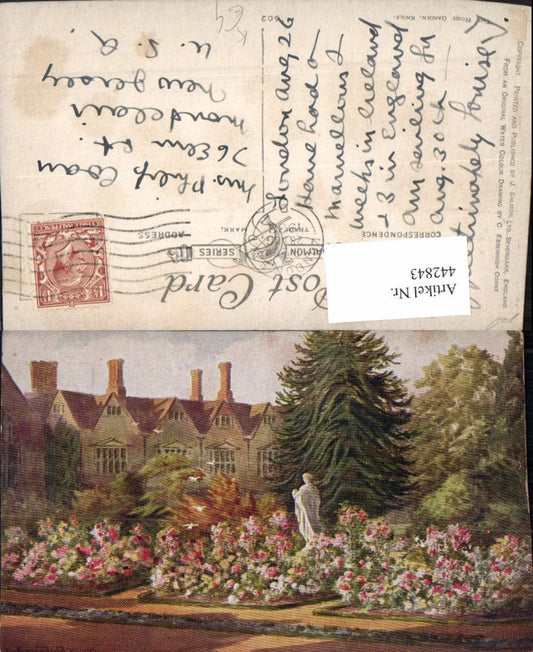 Rose Garden, Knole.
602
K64
Copyright. Printed and Published by J. Salmon, Ltd., Sevenoaks, England
From an Original Water Colour Drawing by C. Essenhigh Corke
Post Card
SALMON SERIES
TRADE MARK.
CORRESPONDENCE
ADDRESS
London Aug 26
Have had a
marvellous 2
weeks in Ireland
& 3 in England
am sailing for
Aug. 30th —
Mrs. Philip Coan
76 Elm St.
Montclair
New Jersey
U. S. A.
Artikel Nr.
442843